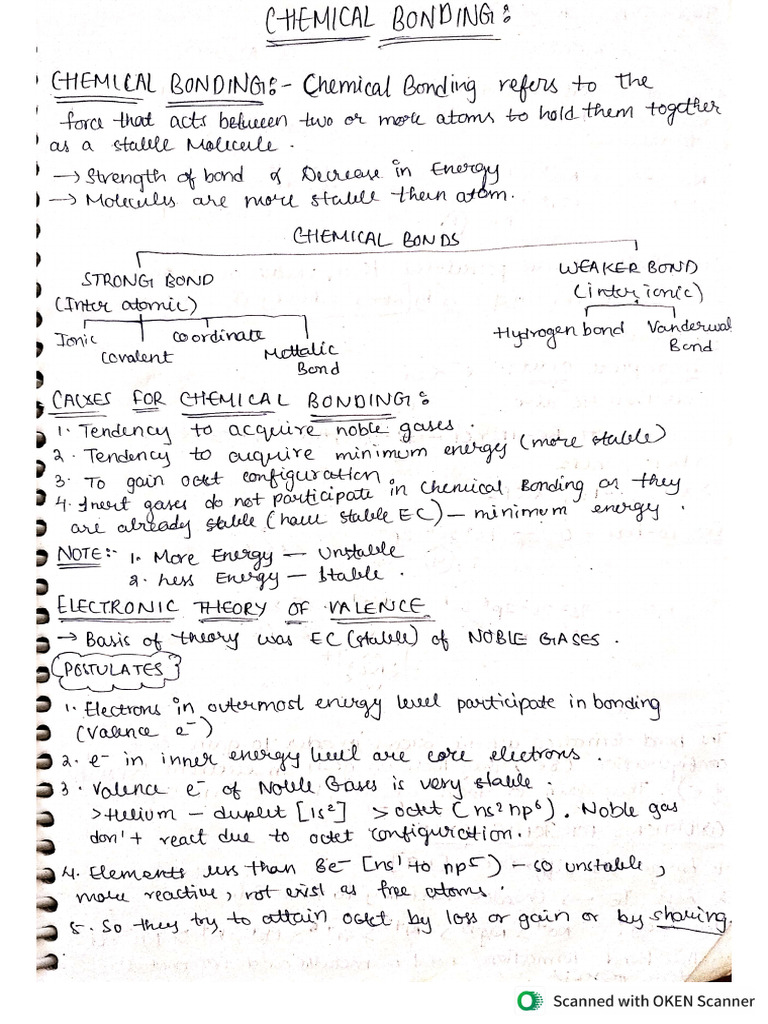 CHEMICAL BONDING:
CHEMICAL BONDING:- Chemical Bonding refers to the
force that acts between two or more atoms to hold them together
as a stable Molecule.
→ Strength of bond α Decrease in Energy
→ Molecules are more stable then atom.
CHEMICAL BONDS
STRONG BOND
(Inter atomic)
WEAKER BOND
(inter ionic)
Ionic
Covalent
Coordinate
Mettalic
Bond
Hydrogen bond
Vanderwal
Bond
CAUSES FOR CHEMICAL BONDING:
1. Tendency to acquire noble gases.
2. Tendency to auquire minimum energy (more stable)
3. To gain octet configuration
4. Inert gases do not participate in Chemical Bonding as they
are already stable (have stable EC) – minimum energy.
NOTE:- 1. More Energy – Unstable
2. Less Energy – Stable.
ELECTRONIC THEORY OF VALENCE
→ Basis of theory was EC (stable) of NOBLE GASES.
POSTULATES
1. Electrons in outermost energy level participate in bonding
(Valence e⁻)
2. e⁻ in inner energy level are core electrons.
3. Valence e⁻ of Noble Gases is very stable.
>Helium – duplet [1s²] >octet (ns²np⁶). Noble gas
don't react due to octet configuration.
4. Elements less than 8e⁻ [ns¹ to np⁵) – so unstable,
more reactive, not exist as free atoms.
5. So they try to attain octet by loss or gain or by sharing.
Scanned with OKEN Scanner